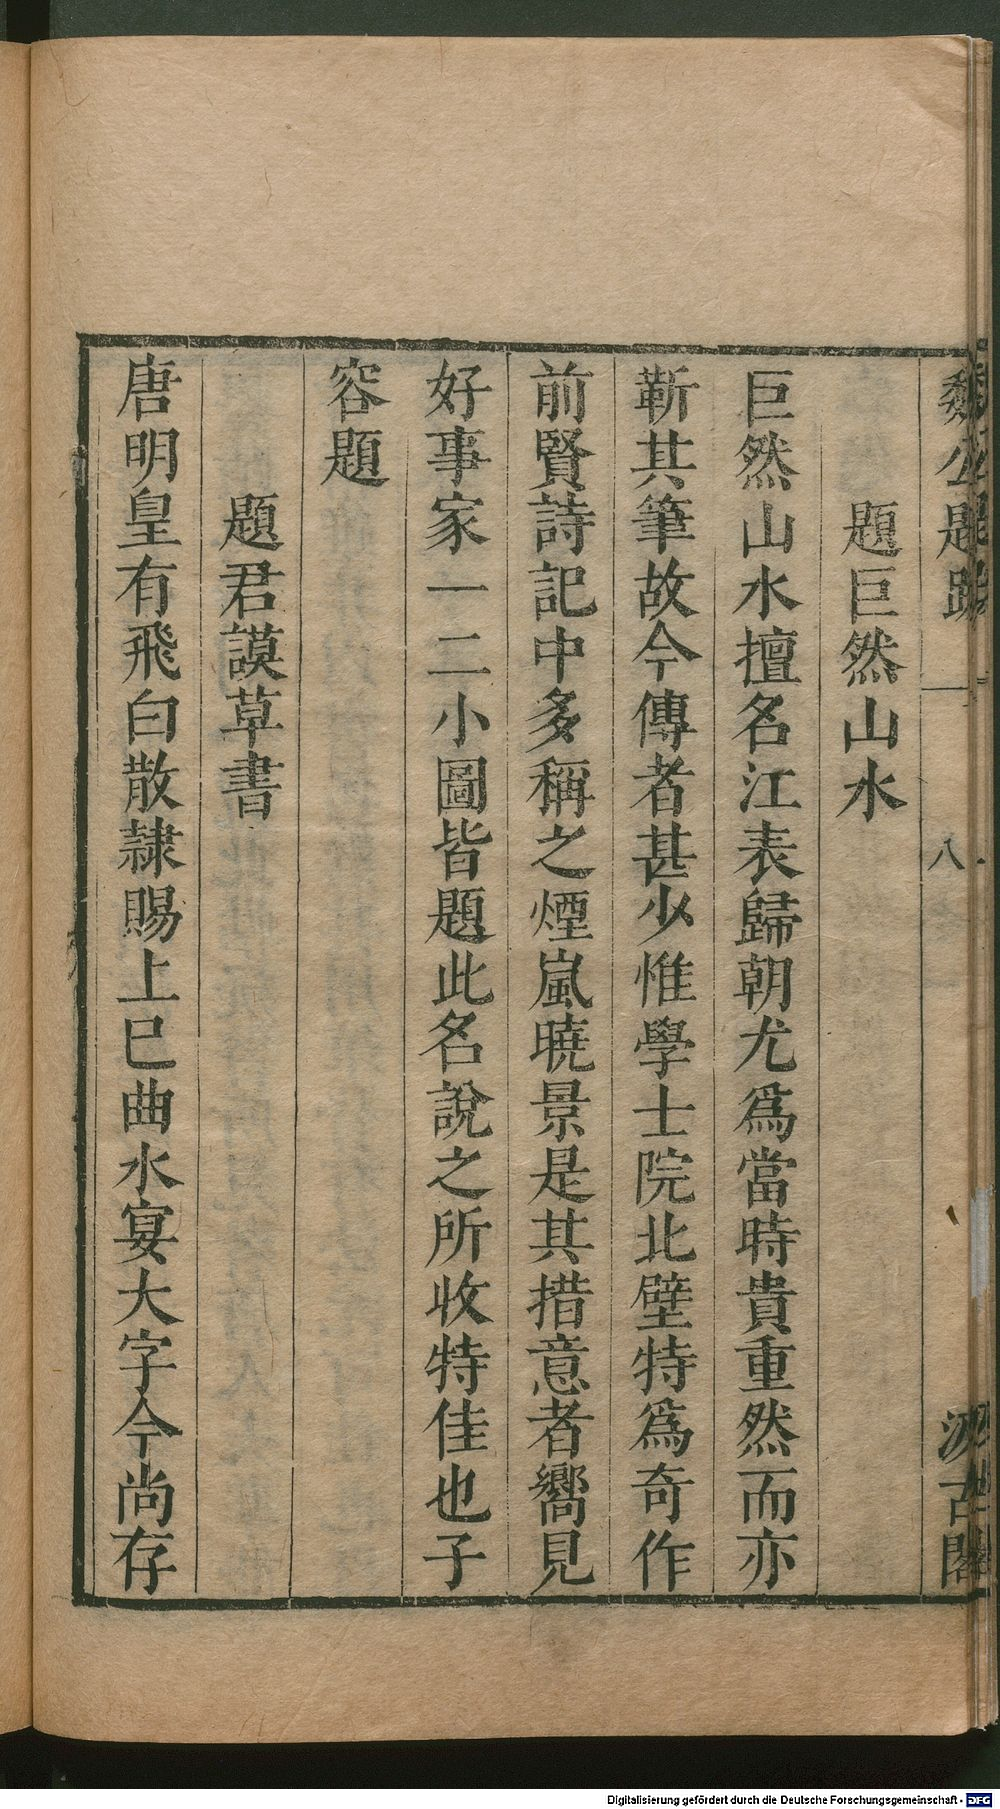 魏公題跋 一 八 汲古閣
題巨然山水
巨然山水擅名江表歸朝尤爲當時貴重然而亦
靳其筆故今傳者甚少惟學士院北壁特爲奇作
前賢詩記中多稱之煙嵐曉景是其措意者嚮見
好事家一二小圖皆題此名說之所收特佳也子
容題
題君謨草書
唐明皇有飛白散隷賜上巳曲水宴大字今尚存
Digitalisierung gefördert durch die Deutsche Forschungsgemeinschaft - DFG